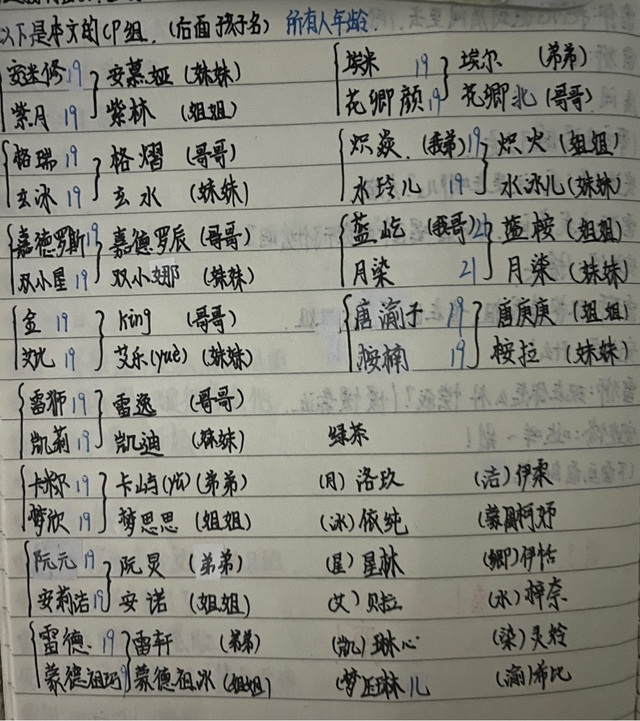 以下是本文的CP组.(后面孩子名) 所有人年龄.
安迷修 19 } 安慕娅 (妹妹)
紫月 19 } 紫林 (姐姐)
格瑞 19 } 格熠 (哥哥)
玄冰 19 } 玄水 (妹妹)
嘉德罗斯 19 } 嘉德罗辰 (哥哥)
双小星 19 } 双小娜 (妹妹)
金 19 } King (哥哥)
艾比 19 } 艾乐(yuè) (妹妹)
雷狮 19 } 雷逸 (哥哥)
凯莉 19 } 凯迪 (妹妹)
卡米尔 19 } 卡屿(yǔ) (弟弟)
梦欣 19 } 梦思思 (姐姐)
阮元 19 } 阮炅 (弟弟)
安莉洁 19 } 安诺 (姐姐)
雷德. 19 } 雷轩 (弟弟)
蒙德祖玛 19 } 蒙德祖冰 (姐姐)
埃米 19 } 埃尔 (弟弟)
花卿颜 19 } 花卿北 (哥哥)
炽焱. 19 } 炽火 (姐姐)
水玲儿 19 } 水冰儿 (妹妹)
蓝屹 21 } 蓝桉 (姐姐)
月染 21 } 月柒 (妹妹)
唐渝予 19 } 唐庚庚 (姐姐)
桉楠 19 } 桉拉 (妹妹)
绿茶
(月) 洛玖 (洁) 伊柔
(冰) 依纯 柯妤
(星) 星林 (卿) 伊恬
(艾) 贝拉 (水) 梓奈
(凯) 琳心 (染) 灵铃
(梦) 琳儿 (渝) 希比